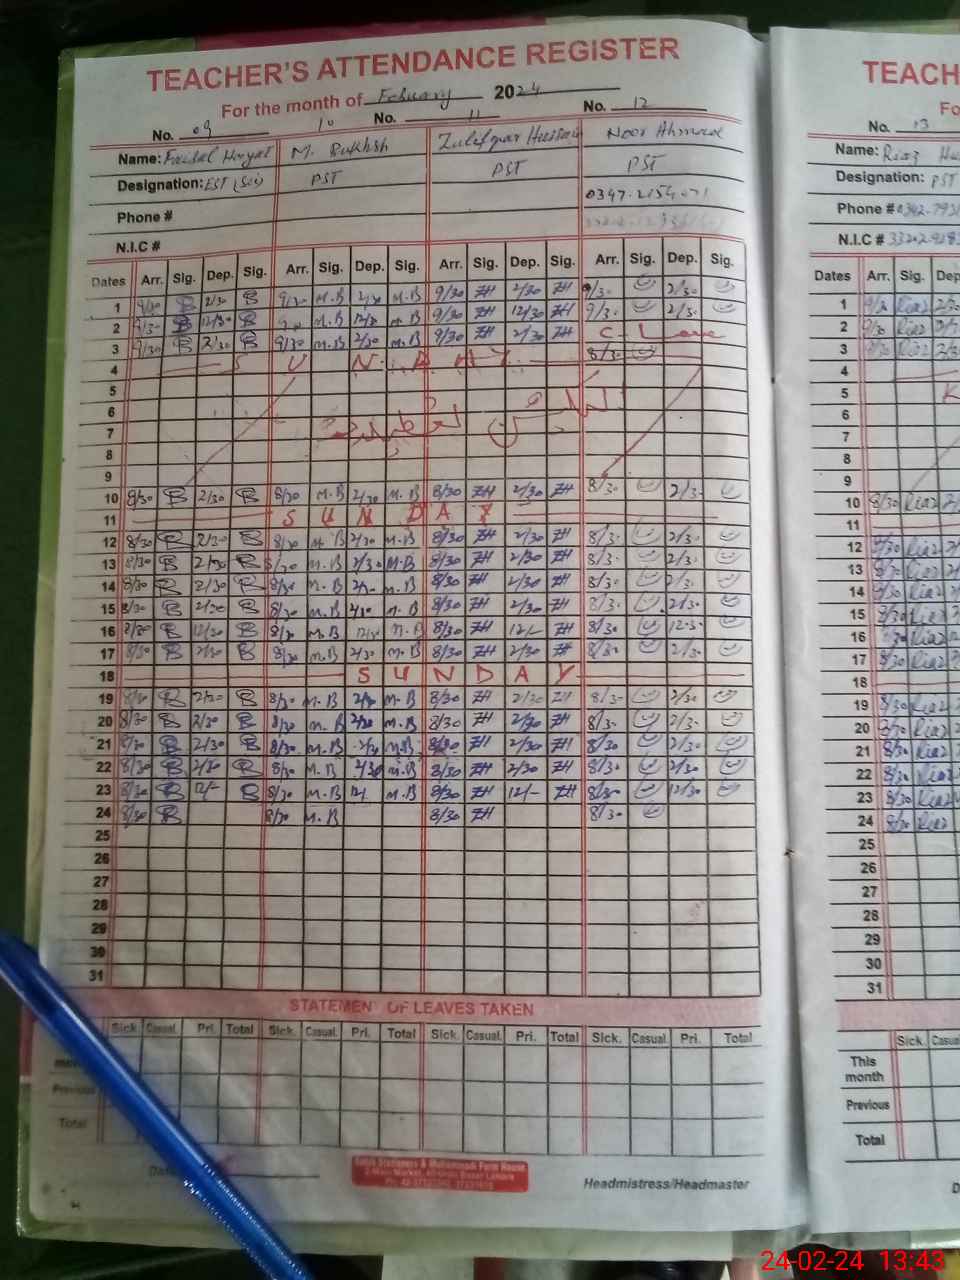 TEACHER'S ATTENDANCE REGISTER
For the month of February 2024
No. 09 10 No. 11 No. 12
Name: Faisal Hayat M. Bukhsh Zulifqar Hussain Noor Ahmad
Designation: EST (Sci) PST PST PST
Phone # 0347-2154071
N.I.C #
Dates Arr. Sig. Dep. Sig. Arr. Sig. Dep. Sig. Arr. Sig. Dep. Sig. Arr. Sig. Dep. Sig.
1 9/30 2/30 9/30 M.B 2/30 M.B 9/30 ZH 2/30 ZH 9/30 2/30
2 9/30 12/30 M.B 12/30 M.B 9/30 ZH 12/30 ZH 9/30 2/30
3 9/30 2/30 9/30 M.B 2/30 M.B 9/30 ZH 2/30 ZH C-Leave
4 SUNDAY 8/30
5
6
7
8
9
10 8/30 2/30 8/30 M.B 2/30 M.B 8/30 ZH 2/30 ZH 8/30 2/30
11 SUNDAY
12 8/30 2/30 8/30 M.B 2/30 M.B 8/30 ZH 2/30 ZH 8/30 2/30
13 8/30 2/30 8/30 M.B 2/30 M.B 8/30 ZH 2/30 ZH 8/30 2/30
14 8/30 2/30 8/30 M.B 2/30 M.B 8/30 ZH 2/30 ZH 8/30 2/30
15 8/30 2/30 8/30 M.B 2/30 M.B 8/30 ZH 2/30 ZH 8/30 2/30
16 8/30 12/30 8/30 M.B M.B 8/30 ZH 12/- ZH 8/30 12-30
17 8/30 2/30 8/30 M.B 2/30 M.B 8/30 ZH 2/30 ZH 8/30 2/30
18 SUNDAY
19 8/30 2/30 8/30 M.B 2/30 M.B 8/30 ZH 2/30 ZH 8/30 2/30
20 8/30 2/30 8/30 M.B 2/30 M.B 8/30 ZH 2/30 ZH 8/30 2/30
21 8/30 2/30 8/30 M.B 2/30 M.B 8/30 ZH 2/30 ZH 8/30 2/30
22 8/30 2/30 8/30 M.B 2/30 M.B 8/30 ZH 2/30 ZH 8/30 2/30
23 8/30 12/- 8/30 M.B 12/ M.B 8/30 ZH 12/- ZH 8/30 12/30
24 8/30 8/30 M.B 8/30 ZH 8/30
25
26
27
28
29
30
31
STATEMENT OF LEAVES TAKEN
Sick. Casual. Pri. Total Sick. Casual. Pri. Total Sick. Casual. Pri. Total Sick. Casual. Pri. Total
Previous
Total
Headmistress/Headmaster
TEACH
Fo
No. 13
Name: Riaz Hu
Designation: PST
Phone # 0342-793
N.I.C # 33202-9183
Dates Arr. Sig. Dep
1 9/30 Riaz 2/30
2 9/30 Riaz
3 9/30 Riaz 2/30
4
5 K
6
7
8
9
10 8/30 Riaz
11
12 8/30 Riaz
13 8/30 Riaz
14 8/30 Riaz
15 8/30 Riaz
16 Riaz
17 8/30 Riaz
18
19 8/30 Riaz
20 Riaz
21 8/30 Riaz
22 8/30 Riaz
23 8/30 Riaz
24 8/30 Riaz
25
26
27
28
29
30
31
Sick. Casua
This month
Previous
Total
D
24-02-24 13:43